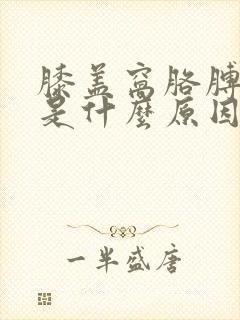 膝盖窝胳膊
是什麽原因
一半盛唐